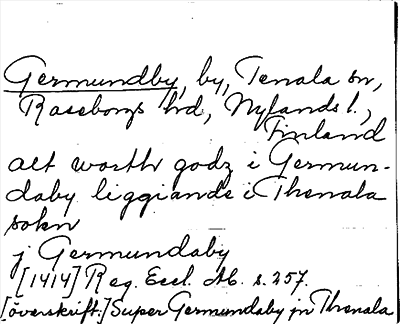 Germundby, by, Tenala sn,
Raseborgs hd, Nylands l.,
Finland
alt worthr godz i Germun-
daby liggiande i Thenala
sokn
j Germundaby
[1414] Reg. Eccl. Ab. s. 257.
[överskrift:] Super Germundaby jn Thenala